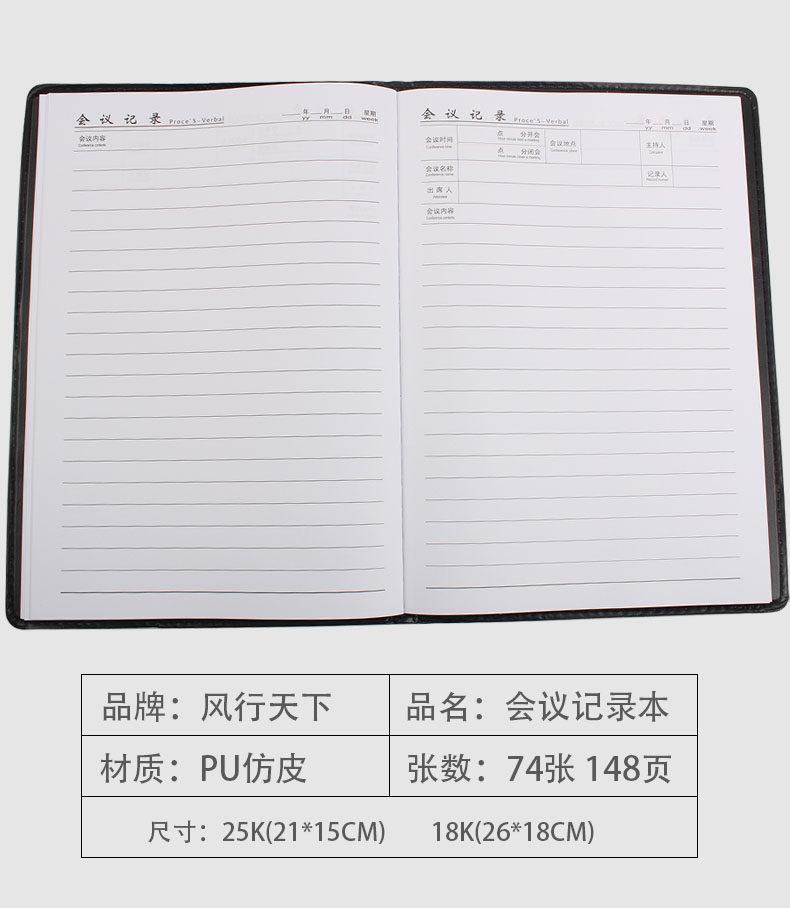 会 议 记 录 Proce'S-Verbal 年 月 日 星期
yy mm dd week
会议内容
Conference contents
会 议 记 录 Proce'S-Verbal 年 月 日 星期
yy mm dd week
会议时间 点 分开会 会议地点 主持人
Conference time Conference place
点 分闭会
会议名称 记录人
Conference name
出 席 人
Attendees
会议内容
Conference contents
品牌：风行天下 品名：会议记录本
材质：PU仿皮 张数：74张 148页
尺寸：25K(21*15CM) 18K(26*18CM)